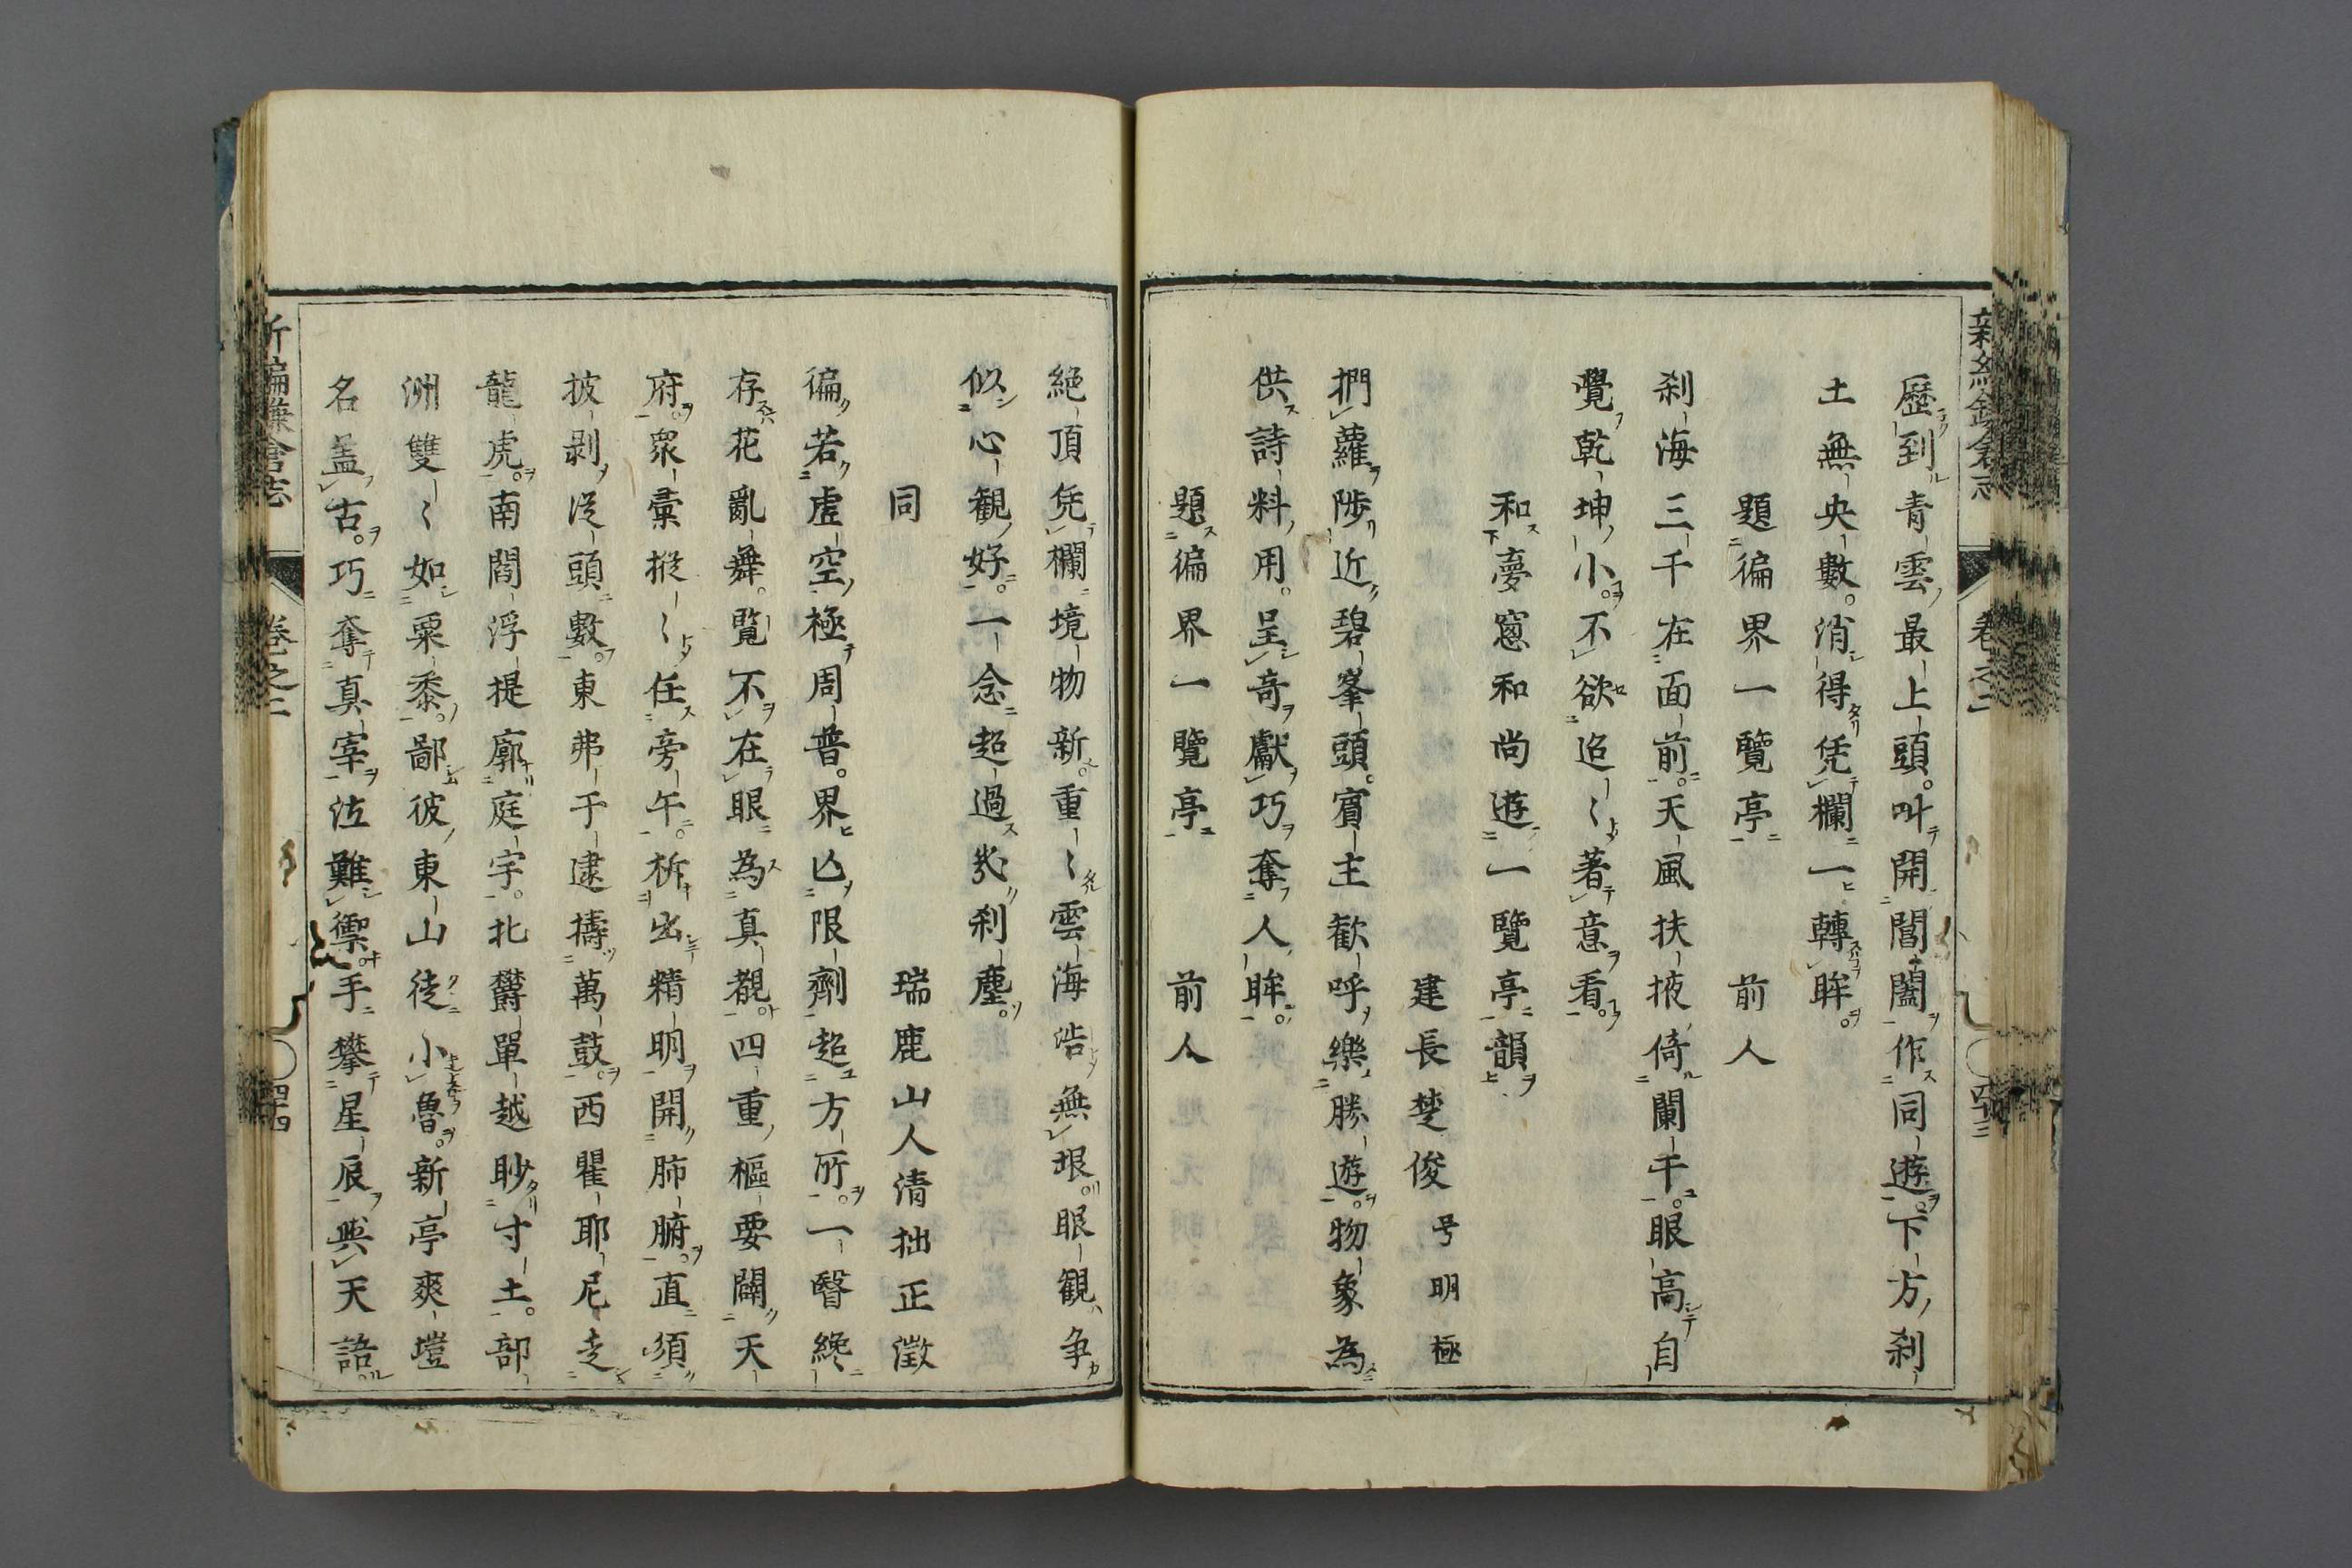 歷到青雲最上頭。叫開閶闔作同遊。下方刹
土無央數。消得凭欄一轉眸。
題徧界一覽亭 前人
刹海三千在面前。天風扶掖倚闌干。眼高自
覺乾坤小。不欲迢〻著意看。
和夢窓和尚遊一覽亭韻
建長楚俊号明極
捫蘿陟近碧峯頭。賓主歡呼樂勝遊。物象為
供詩料用。呈奇獻巧奪人眸。
題徧界一覽亭 前人
絕頂凭欄境物新。重〻雲海浩無垠。眼觀爭
似心觀好。一念超過幾刹塵。
同 瑞鹿山人清拙正澂
徧若虛空極周普。界亾限劑超方所。一瞖纔
存花亂舞。覽不在眼為真覩。四重樞要闢天
府。衆彙摐〻任旁午。析出精明開肺腑。直須
披剥從頭數。東弗于逮擣萬鼓。西瞿耶尼走
龍虎。南閻浮提廓庭宇。北欝單越眇寸土。部
洲雙〻如粟黍。鄙彼東山徒小魯。新亭爽塏
名盖古。巧奪真宰法難禦。手攀星辰與天語
新編鎌倉志 卷之二
四十四